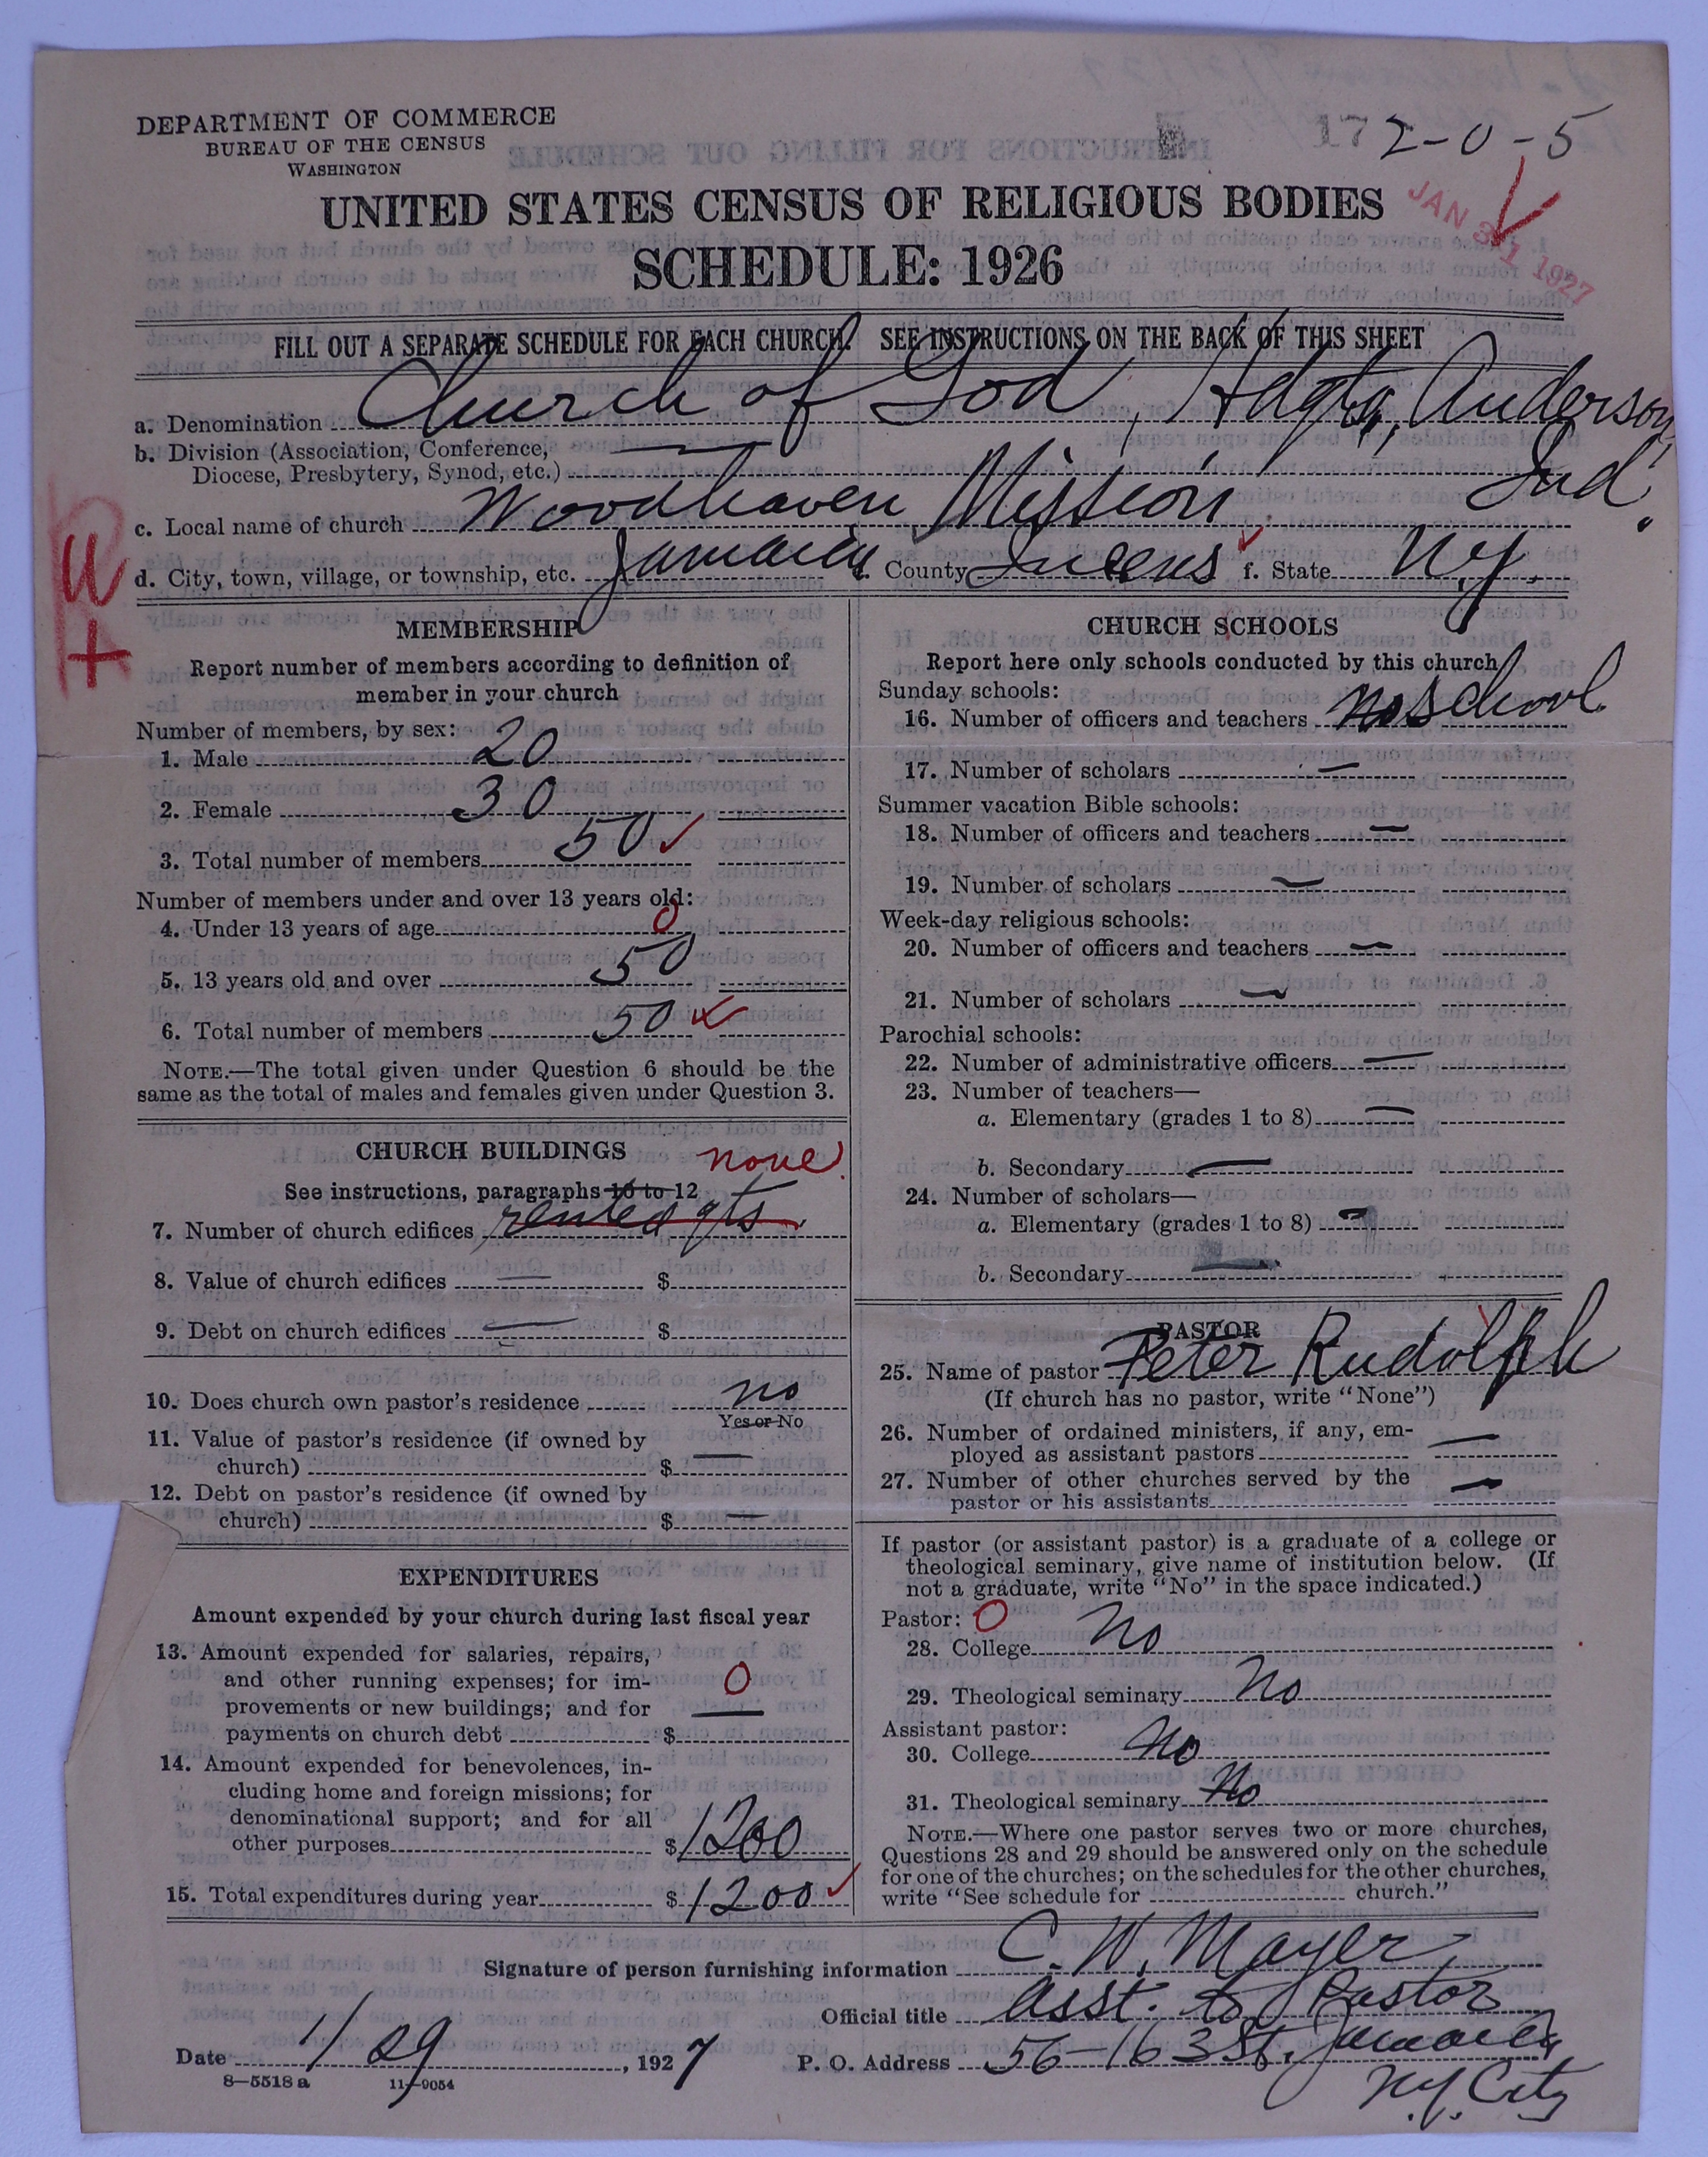 DEPARTMENT OF COMMERCE
BUREAU OF THE CENSUS
WASHINGTON
172-0-5
JAN 31 1927
UNITED STATES CENSUS OF RELIGIOUS BODIES
SCHEDULE: 1926
FILL OUT A SEPARATE SCHEDULE FOR EACH CHURCH. SEE INSTRUCTIONS ON THE BACK OF THIS SHEET
a. Denomination Church of God, Hdqts, Anderson, Ind.
b. Division (Association, Conference,
Diocese, Presbytery, Synod, etc.) —
c. Local name of church Woodhaven Mission
d. City, town, village, or township, etc. Jamaica e. County Queens f. State N.Y.
MEMBERSHIP
Report number of members according to definition of
member in your church
Number of members, by sex:
1. Male 20
2. Female 30
3. Total number of members 50
Number of members under and over 13 years old:
4. Under 13 years of age 0
5. 13 years old and over 50
6. Total number of members 50
NOTE.—The total given under Question 6 should be the
same as the total of males and females given under Question 3.
CHURCH BUILDINGS none
See instructions, paragraphs 10 to 12
7. Number of church edifices rented qts.
8. Value of church edifices — $
9. Debt on church edifices — $
10. Does church own pastor's residence no
Yes or No
11. Value of pastor's residence (if owned by
church) $ —
12. Debt on pastor's residence (if owned by
church) $ —
EXPENDITURES
Amount expended by your church during last fiscal year
13. Amount expended for salaries, repairs,
and other running expenses; for im-
provements or new buildings; and for
payments on church debt $ 0 —
14. Amount expended for benevolences, in-
cluding home and foreign missions; for
denominational support; and for all
other purposes $ 1200
15. Total expenditures during year $ 1200
CHURCH SCHOOLS
Report here only schools conducted by this church
Sunday schools:
16. Number of officers and teachers no School
17. Number of scholars —
Summer vacation Bible schools:
18. Number of officers and teachers —
19. Number of scholars —
Week-day religious schools:
20. Number of officers and teachers —
21. Number of scholars —
Parochial schools:
22. Number of administrative officers —
23. Number of teachers—
a. Elementary (grades 1 to 8) —
b. Secondary —
24. Number of scholars—
a. Elementary (grades 1 to 8) —
b. Secondary —
PASTOR
25. Name of pastor Peter Rudolph
(If church has no pastor, write "None")
26. Number of ordained ministers, if any, em-
ployed as assistant pastors —
27. Number of other churches served by the
pastor or his assistants —
If pastor (or assistant pastor) is a graduate of a college or
theological seminary, give name of institution below. (If
not a graduate, write "No" in the space indicated.)
Pastor: 0
28. College No
29. Theological seminary No
Assistant pastor:
30. College No
31. Theological seminary No
NOTE.—Where one pastor serves two or more churches,
Questions 28 and 29 should be answered only on the schedule
for one of the churches; on the schedules for the other churches,
write "See schedule for church."
Signature of person furnishing information C. W. Mayer
Official title Asst. to Pastor
Date 1/29, 1927 P. O. Address 56-163 St. Jamaica
N.Y. City
8-5518 a 11-9054